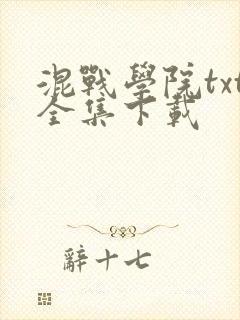 混戰學院txt
全集下載
辭十七